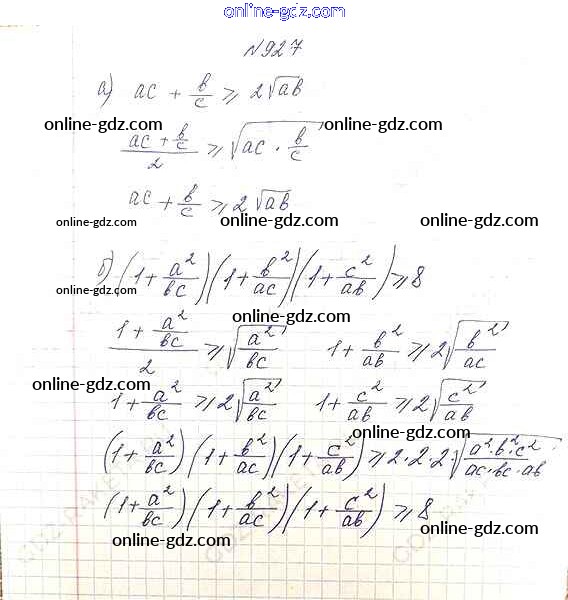 online-gdz.com
№927
а) ac + b/c ⩾ 2√ab
online-gdz.com online-gdz.com
(ac + b/c)/2 ⩾ √(ac · b/c)
ac + b/c ⩾ 2√ab
online-gdz.com online-gdz.com online-gdz.com
б) (1 + a²/bc)(1 + b²/ac)(1 + c²/ab) ⩾ 8
online-gdz.com
online-gdz.com
(1 + a²/bc)/2 ⩾ √(a²/bc) 1 + b²/ab ⩾ 2√(b²/ac)
online-gdz.com online-gdz.com
1 + a²/bc ⩾ 2√(a²/bc) 1 + c²/ab ⩾ 2√(c²/ab)
online-gdz.com
(1 + a²/bc)(1 + b²/ac)(1 + c²/ab) ⩾ 2·2·2√(a²·b²·c²/ac·bc·ab)
(1 + a²/bc)(1 + b²/ac)(1 + c²/ab) ⩾ 8
online-gdz.com
online-gdz.com online-gdz.com